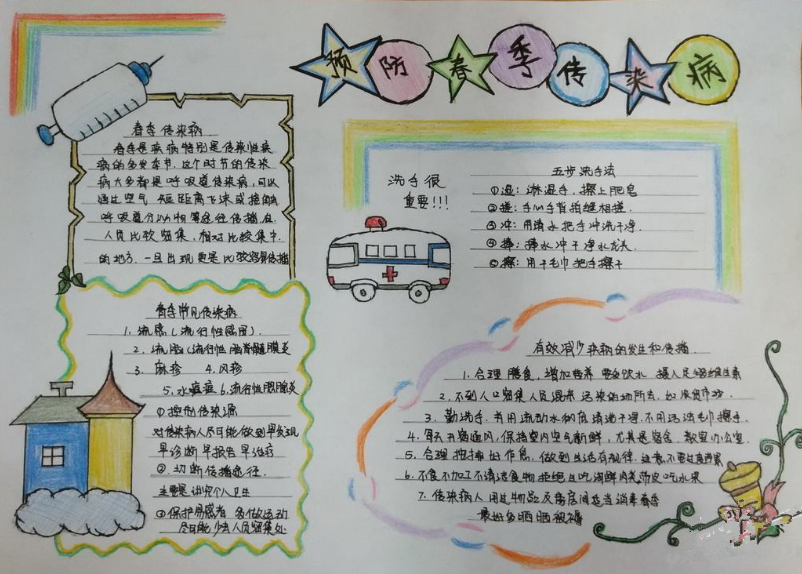 预防春季传染病
春季传染病
春季是疾病特别是传染性疾
病的多发季节.这个时节的传染
病大多都是呼吸道传染病,可以
通过空气 短距离飞沫或接触
呼吸道分泌物等途径传播.在
人员比较密集,相对比较集中
的地方,一旦出现更是比较容易传播
洗手很
重要!!!
五步洗手法
①湿:淋湿手,擦上肥皂
②搓:手心手背指缝相搓.
③冲:用清水把手冲洗干净.
④捧:捧水冲干净水龙头.
⑤擦:用干毛巾把手擦干
春季常见传染病
1.流感(流行性感冒).
2.流脑(流行性脑脊髓膜炎
3.麻疹 4.风疹
5.水痘 6.流行性腮腺炎
①控制传染源
对传染病人尽可能做到早发现
早诊断早报告早治疗
②.切断传播途径.
主要是讲究个人卫生
③保护易感者 多做运动
尽可能少去人员密集处
有效减少疾病的发生和传播.
1.合理膳食,增加营养 要多饮水 摄入足够维生素
2.不到人口密集人员混杂 污染的场所去.如农贸市场.
3.勤洗手.并用流动水彻底清洗干净.不用污浊毛巾擦手.
4.每天开窗通风,保持室内空气新鲜,尤其是宿舍 教室办公室.
5.合理安排好作息,做到生活有规律.注意不要过度劳累
6.不食不加工不清洁食物拒绝生吃海鲜肉类
7.传染病人用过物品及房间适当消毒
最好多晒晒被褥